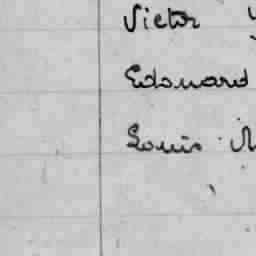 Victor
Edouard
Louis